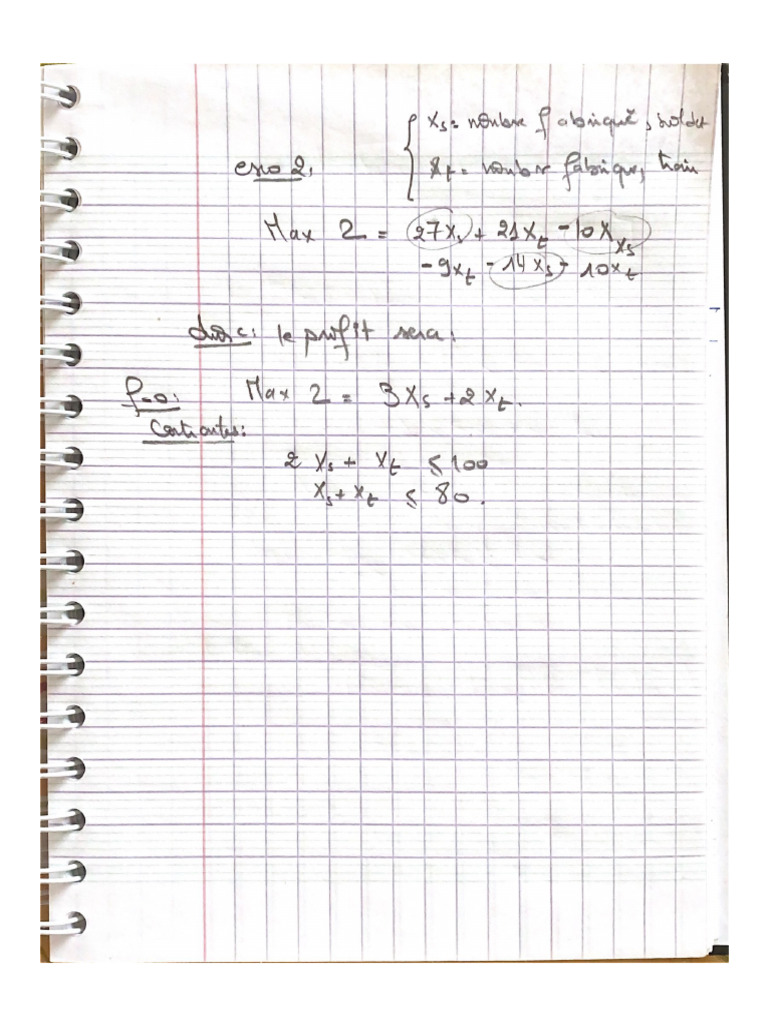 { Xs = nombre fabriqué, soldat
exo 2: Xt = nombre fabriqué, train
Max Z = 27Xs + 21Xt - 10Xxs
- 9xt - 14xs - 10xt
donc: le profit sera:
f-o: Max Z = 3Xs + 2Xt.
Contraintes:
2 Xs + Xt ≤ 100
Xs + Xt ≤ 80.